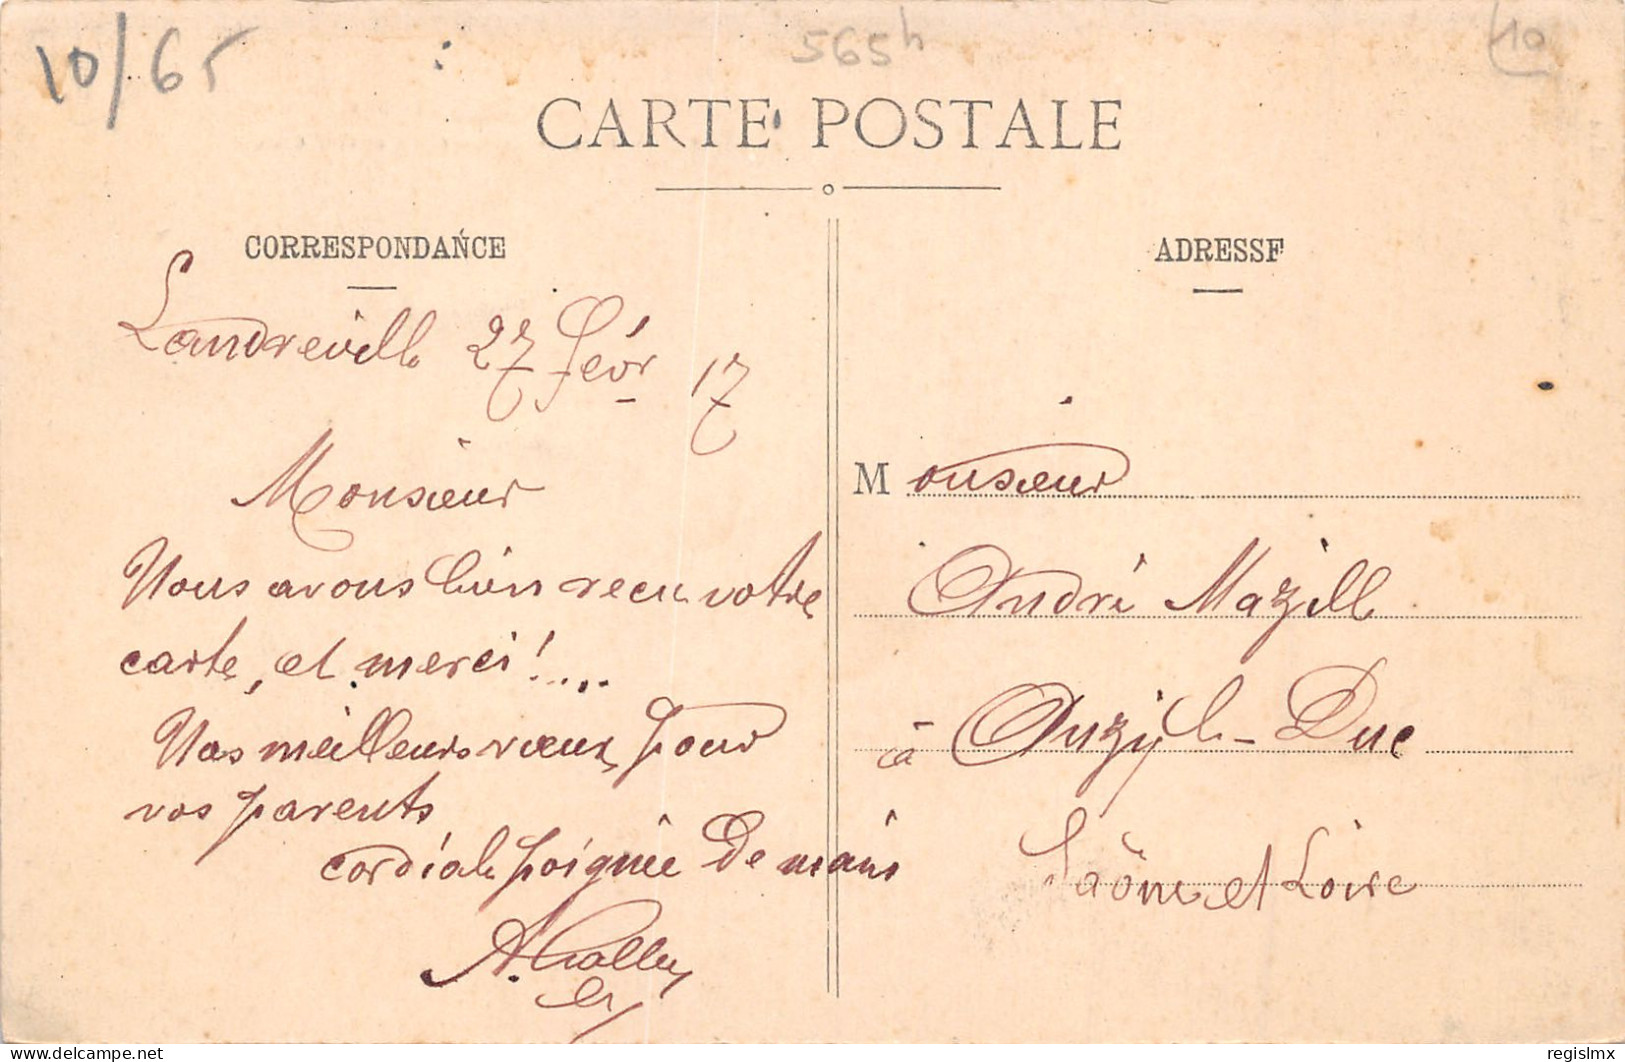 10/65
565h
10
CARTE POSTALE
CORRESPONDANCE
Landreville 27 Févr 17
Monsieur
Nous avons bien recu votre
carte, et merci!....
Nos meilleurs vœux pour
vos parents
cordiale poignée de mains
ADRESSE
Monsieur
André Mazille
à Anzy le-Duc
Saône et Loire
delcampe.net
regislmx